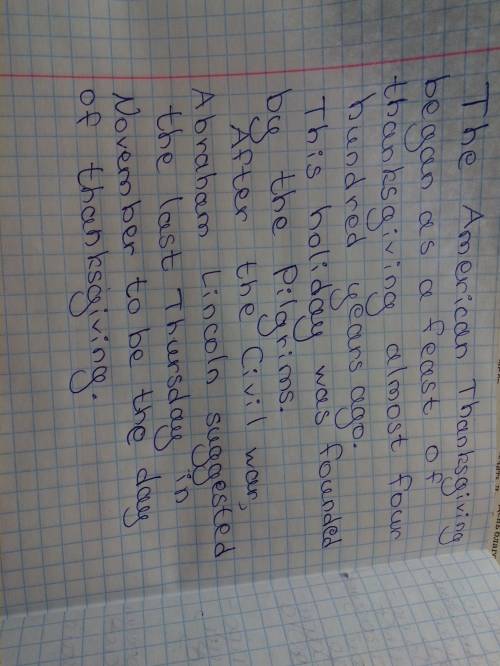 The American Thanksgiving
began as a feast of
thanksgiving almost four
hundred years ago.
This holiday was founded
by the Pilgrims.
After the Civil war,
Abraham Lincoln suggested
the last Thursday in
November to be the day
of thanksgiving.